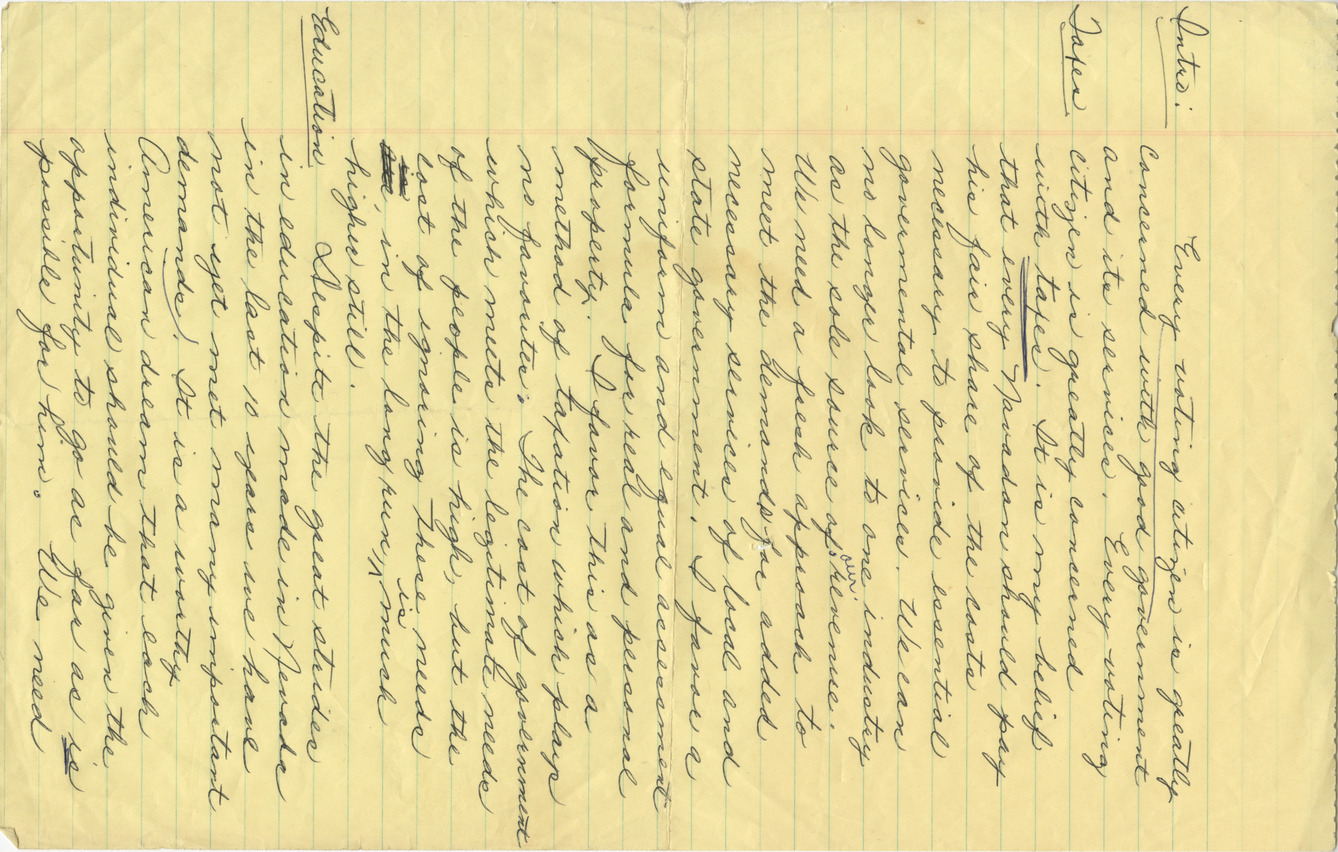 Intro:
Every voting citizen is greatly
concerned with good government
and its services. Every voting
Taxes citizen is greatly concerned
with taxes. It is my belief
that every Nevadan should pay
his fair share of the costs
necessary to provide essential
governmental services. We can
no longer look to one industry
as the sole source of our revenue.
We need a fresh approach to
meet the demands for added
necessary services of local and
state government. I favor a
uniform and equal assessment
formula for real and personal
property. I favor this as a
method of taxation which plays
no favorites. The cost of government
which meets the legitimate needs
of the people is high, but the
cost of ignoring these needs
in the long run, is much
higher still.
Education Despite the great strides
in education made in Nevada
in the last 10 years we have
not yet met many important
demands! It is a worthy
American dream that each
individual should be given the
opportunity to go as far as is
possible for him. We need